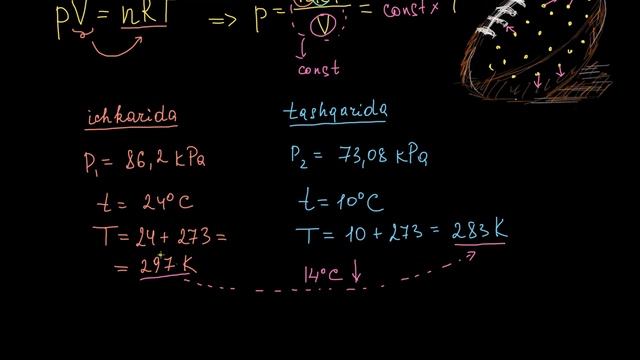 pV = nRT ⇒ p = V = const × T
const
ichkarida
P₁ = 86,2 kPa
t = 24°C
T = 24 + 273 =
= 297 K
tashqarida
P₂ = 73,08 kPa
t = 10°C
T = 10 + 273 = 283 K
14°C ↓